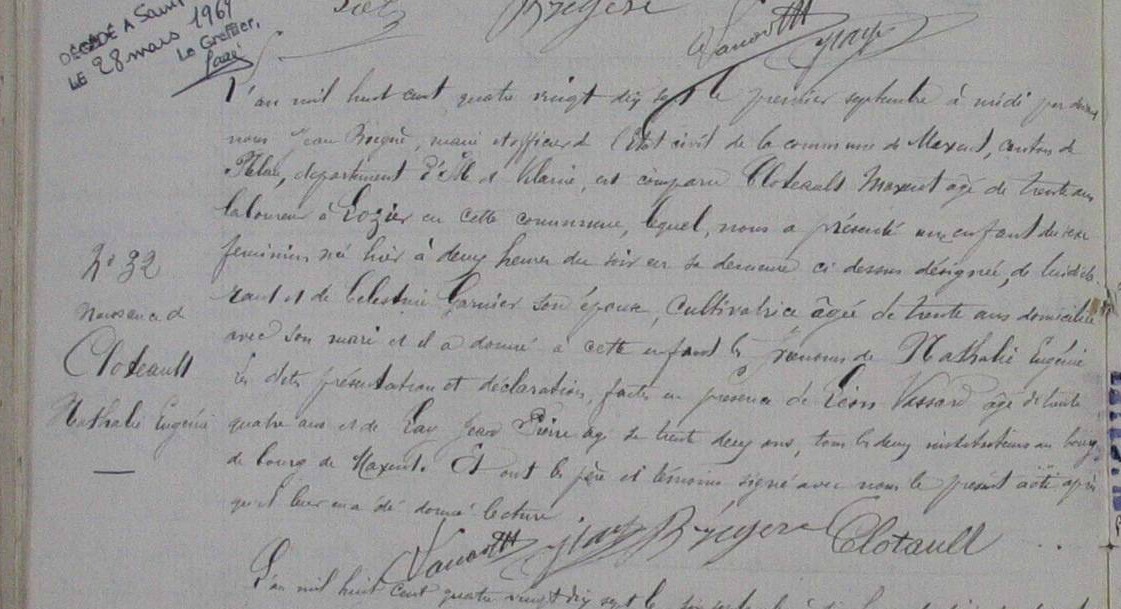 DÉCÉDÉ A Saint
LE 28 mars 1969
Le Greffier,
L'an mil huit cent quatre vingt dix sept le premier septembre à midi par devant
nous Jean Brégère, maire et officier de l'Etat civil de la commune de Maxent, canton de
Plélan, département d'Ille et Vilaine, est comparu Cloteault Maxent agé de trente ans
laboureur à Lozier en cette commune, lequel, nous a présenté un enfant du sexe
feminin, né hier à deux heures du soir en sa demeure ci dessus désignée, de lui décla-
rant et de Celestine Garnier son épouse, cultivatrice âgée de trente ans domiciliée
avec son mari et il a donné a cette enfant les prénoms de Nathalie Eugénie
Les dites présentation et déclaration, faites en présence de Léon Vassard âgé de trente
quatre ans et de Jean Pierre agé de trente deux ans, tous les deux instituteurs au bourg
de bourg de Maxent. Et ont les père et témoins signé avec nous le présent acte après
qu'il leur en a été donné lecture
Brégère Clotault
N° 32
Naissance de
Cloteault
Nathalie Eugénie
L'an mil huit cent quatre vingt dix sept le